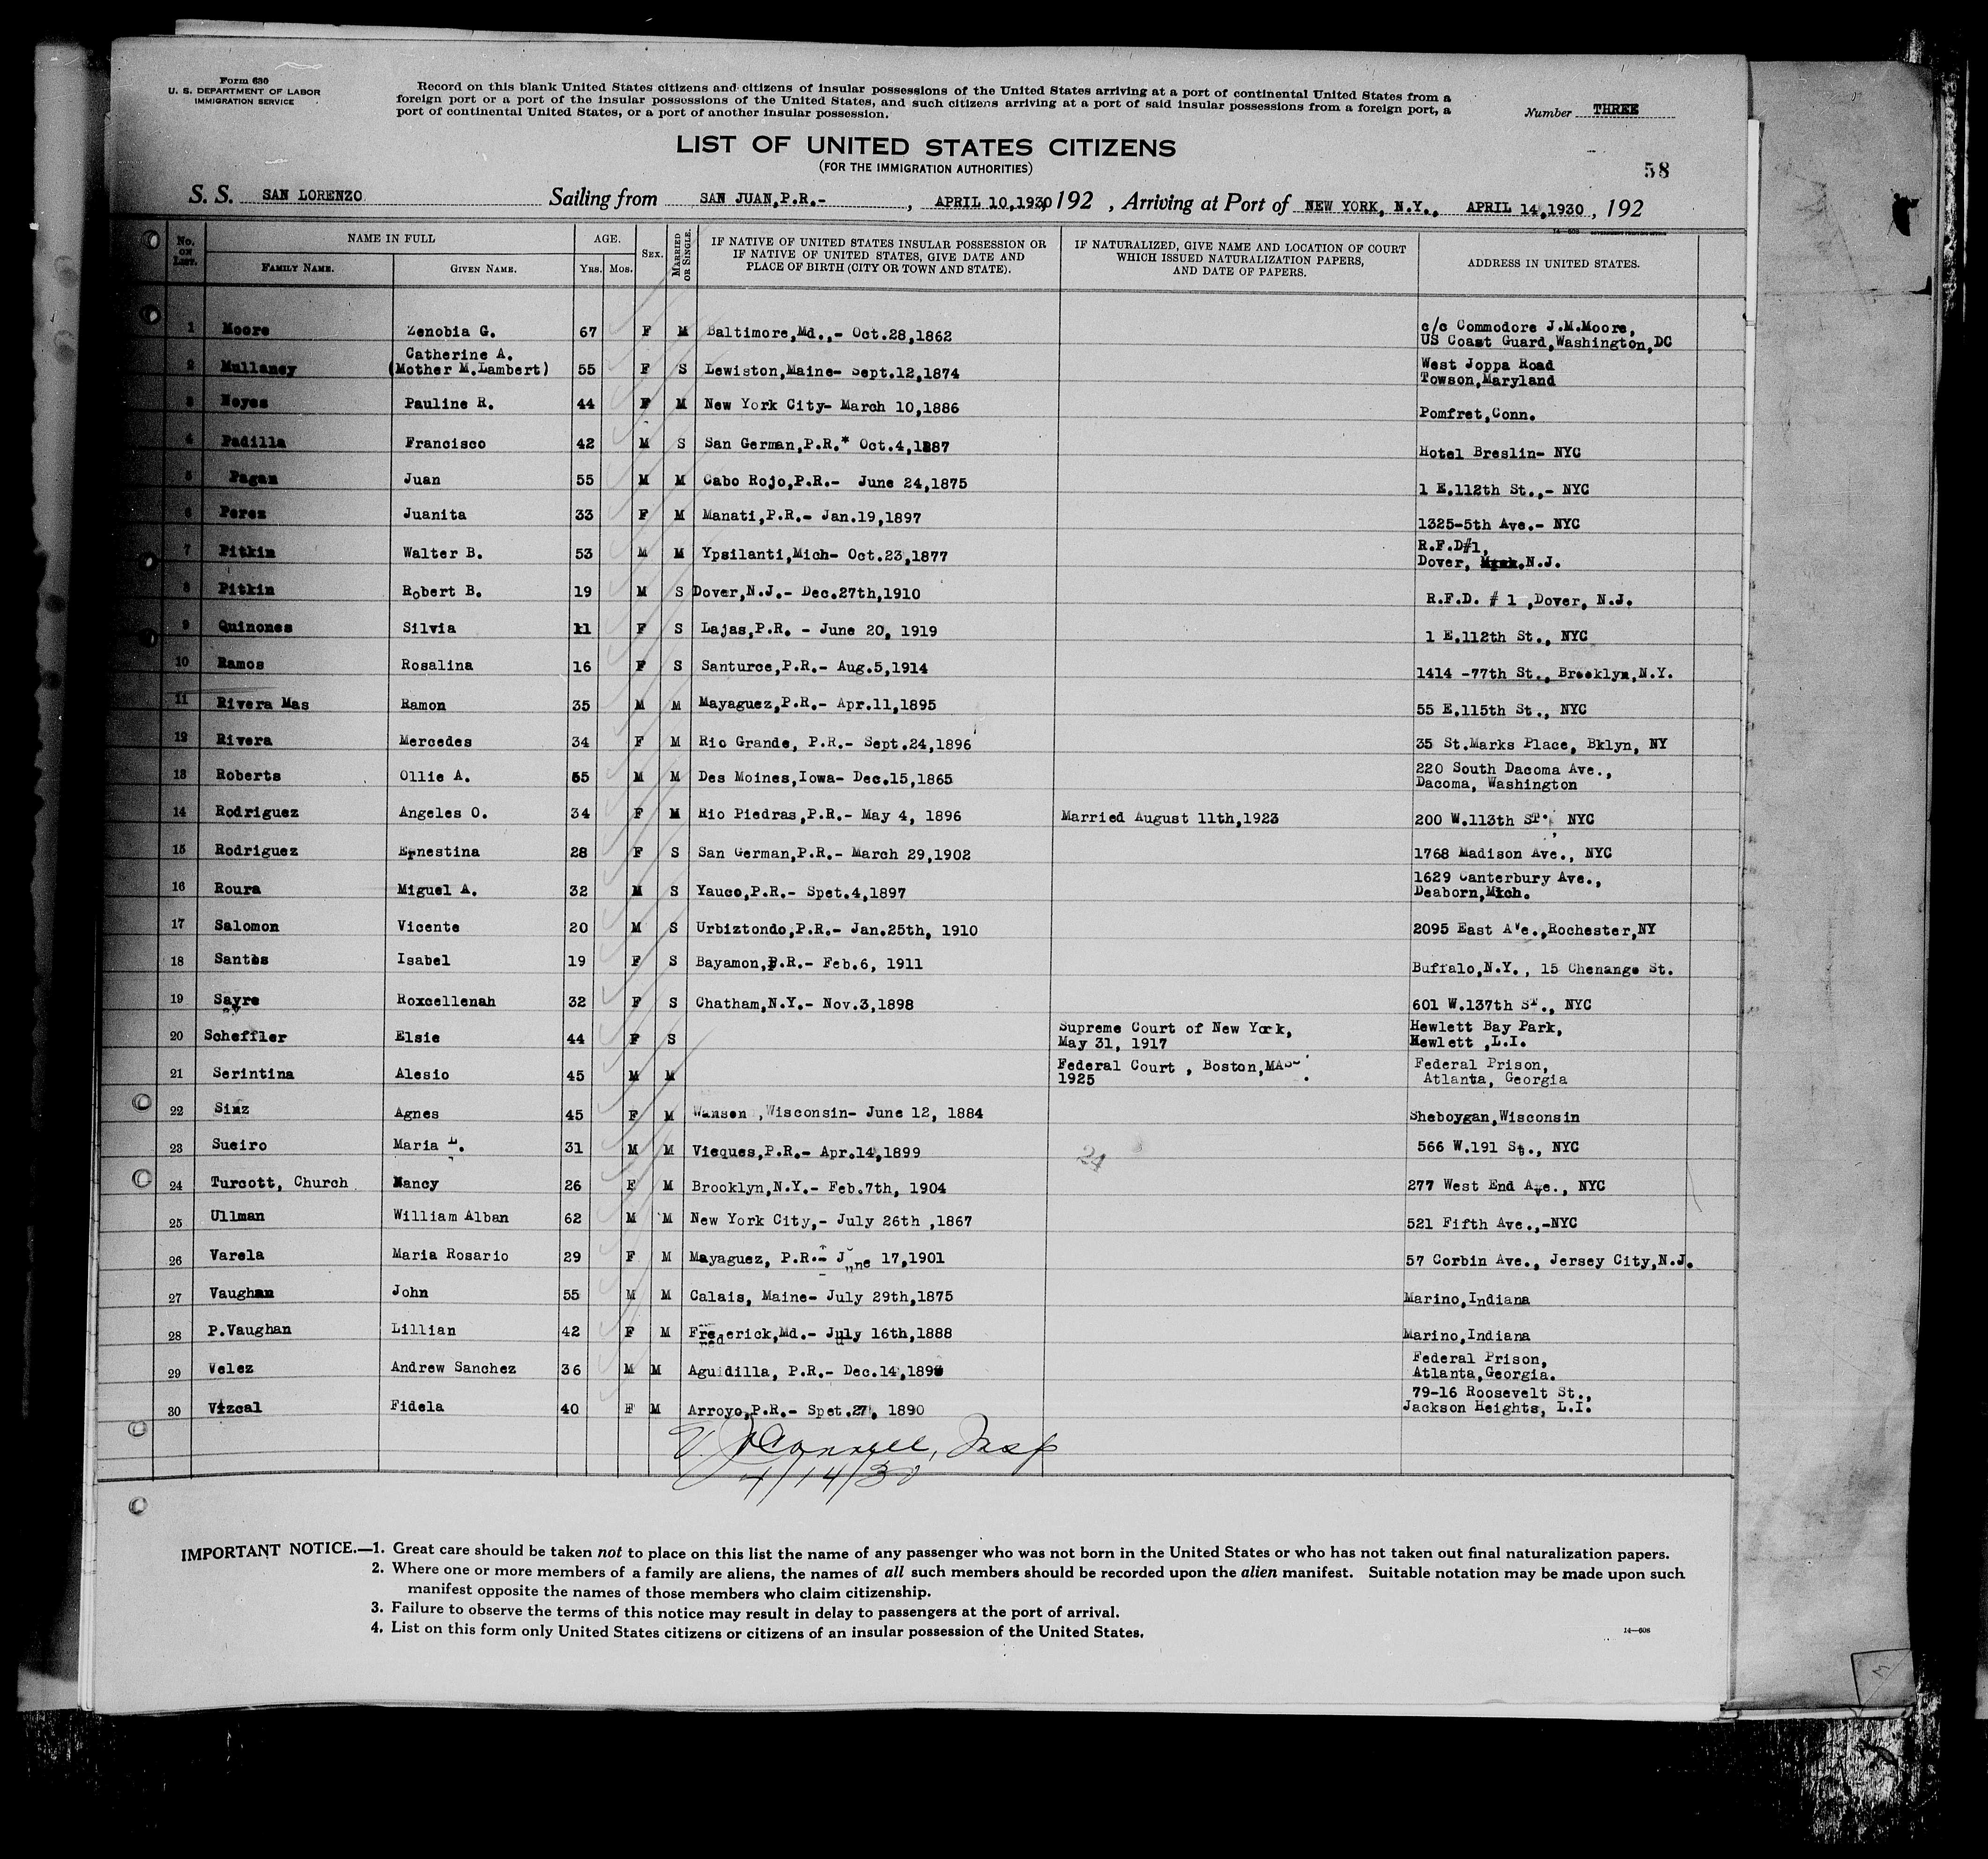 Form 630
U. S. DEPARTMENT OF LABOR
IMMIGRATION SERVICE
Record on this blank United States citizens and citizens of insular possessions of the United States arriving at a port of continental United States from a
foreign port or a port of the insular possessions of the United States, and such citizens arriving at a port of said insular possessions from a foreign port, a
port of continental United States, or a port of another insular possession.
Number THREE
LIST OF UNITED STATES CITIZENS
(FOR THE IMMIGRATION AUTHORITIES)
58
S. S. SAN LORENZO Sailing from SAN JUAN,P.R.- , APRIL 10,1930, 192 , Arriving at Port of NEW YORK, N.Y., APRIL 14,1930 , 192
No. ON LIST. NAME IN FULL FAMILY NAME. GIVEN NAME. AGE. YRS. MOS. SEX. MARRIED OR SINGLE. IF NATIVE OF UNITED STATES INSULAR POSSESSION OR IF NATIVE OF UNITED STATES, GIVE DATE AND PLACE OF BIRTH (CITY OR TOWN AND STATE). IF NATURALIZED, GIVE NAME AND LOCATION OF COURT WHICH ISSUED NATURALIZATION PAPERS, AND DATE OF PAPERS. ADDRESS IN UNITED STATES.
1 Moore Zenobia G. 67 F M Baltimore,Md.,- Oct.28,1862 c/o Commodore J.M.Moore, US Coast Guard,Washington,DC
2 Mullaney Catherine A. (Mother M.Lambert) 55 F S Lewiston,Maine- Sept.12,1874 West Joppa Road Towson,Maryland
3 Noyes Pauline R. 44 F M New York City- March 10,1886 Pomfret,Conn.
4 Padilla Francisco 42 M S San German,P.R.* Oct.4,1887 Hotel Breslin- NYC
5 Pagan Juan 55 M M Cabo Rojo,P.R.- June 24,1875 1 E.112th St.,- NYC
6 Perez Juanita 33 F M Manati,P.R.- Jan.19,1897 1325-5th Ave.- NYC
7 Pitkin Walter B. 53 M M Ypsilanti,Mich- Oct.23,1877 R.F.D#1, Dover, N.J.
8 Pitkin Robert B. 19 M S Dover,N.J.- Dec.27th,1910 R.F.D. # 1 ,Dover, N.J.
9 Quinones Silvia 11 F S Lajas,P.R. - June 20, 1919 1 E.112th St., NYC
10 Ramos Rosalina 16 F S Santurce,P.R.- Aug.5,1914 1414 -77th St., Brooklyn,N.Y.
11 Rivera Mas Ramon 35 M M Mayaguez,P.R.- Apr.11,1895 55 E.115th St., NYC
12 Rivera Mercedes 34 F M Rio Grande, P.R.- Sept.24,1896 35 St.Marks Place, Bklyn, NY
13 Roberts Ollie A. 65 M M Des Moines,Iowa- Dec.15,1865 220 South Dacoma Ave., Dacoma, Washington
14 Rodriguez Angeles O. 34 F M Rio Piedras,P.R.- May 4, 1896 Married August 11th,1923 200 W.113th St. NYC
15 Rodriguez Ernestina 28 F S San German,P.R.- March 29,1902 1768 Madison Ave., NYC
16 Roura Miguel A. 32 M S Yauco,P.R.- Spet.4,1897 1629 Canterbury Ave., Deaborn,Mich.
17 Salomon Vicente 20 M S Urbiztondo,P.R.- Jan.25th, 1910 2095 East Ave.,Rochester,NY
18 Santos Isabel 19 F S Bayamon,P.R.- Feb.6, 1911 Buffalo,N.Y., 15 Chenango St.
19 Sayre Roxcellenah 32 F S Chatham,N.Y.- Nov.3,1898 601 W.137th St., NYC
20 Scheffler Elsie 44 F S Supreme Court of New York, May 31, 1917 Hewlett Bay Park, Hewlett ,L.I.
21 Serintina Alesio 45 M M Federal Court , Boston,MASS. 1925 Federal Prison, Atlanta, Georgia
22 Sinz Agnes 45 F M ,Wisconsin- June 12, 1884 Sheboygan,Wisconsin
23 Sueiro Maria L. 31 M M Vieques,P.R.- Apr.14,1899 24 566 W.191 St., NYC
24 Turcott, Church Nancy 26 F M Brooklyn,N.Y.- Feb.7th, 1904 277 West End Ave., NYC
25 Ullman William Alban 62 M M New York City,- July 26th ,1867 521 Fifth Ave.,-NYC
26 Varela Maria Rosario 29 F M Mayaguez, P.R.- June 17,1901 57 Corbin Ave., Jersey City,N.J.
27 Vaughan John 55 M M Calais, Maine- July 29th,1875 Marino,Indiana
28 P.Vaughan Lillian 42 F M Frederick,Md.- July 16th,1888 Marino,Indiana
29 Velez Andrew Sanchez 36 M M Aguidilla, P.R.- Dec.14, Federal Prison, Atlanta,Georgia.
30 Vizcal Fidela 40 F M Arroyo,P.R.- Spet.27, 1890 79-16 Roosevelt St., Jackson Heights, L.I.
O'Connell, Insp
4/14/30
IMPORTANT NOTICE.—1. Great care should be taken not to place on this list the name of any passenger who was not born in the United States or who has not taken out final naturalization papers.
2. Where one or more members of a family are aliens, the names of all such members should be recorded upon the alien manifest. Suitable notation may be made upon such
manifest opposite the names of those members who claim citizenship.
3. Failure to observe the terms of this notice may result in delay to passengers at the port of arrival.
4. List on this form only United States citizens or citizens of an insular possession of the United States.
14—608